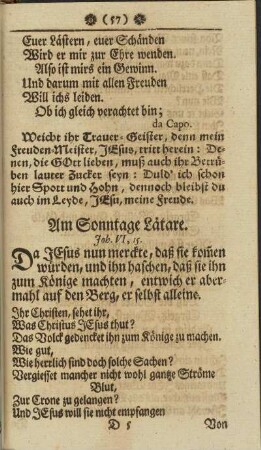 (57)
Euer Lästern, euer Schänden
Wird er mir zur Ehre wenden.
Also ist mirs ein Gewinn.
Und darum mit allen Freuden
Will ichs leiden.
Ob ich gleich verachtet bin;
da Capo.
Weicht ihr Trauer-Geister, denn mein
Freuden-Meister, JEsus, tritt herein: De-
nen, die GOtt lieben, muß auch ihr Betrü-
ben lauter Zucker seyn: Duld' ich schon
hier Spott und Hohn, dennoch bleibst du
auch im Leyde, JEsu, meine Freude.
Am Sonntage Lätare.
Joh. VI, 15.
Da JEsus nun merckte, daß sie kom̃en
würden, und ihn haschen, daß sie ihn
zum Könige machten, entwich er aber-
mahl auf den Berg, er selbst alleine.
Ihr Christen, sehet ihr,
Was Christus JEsus thut?
Das Volck gedencket ihn zum Könige zu machen.
Wie gut,
Wie herrlich sind doch solche Sachen?
Vergiesset mancher nicht wohl gantze Ströme
Blut,
Zur Crone zu gelangen?
Und JEsus will sie nicht empfangen
D 5 Von